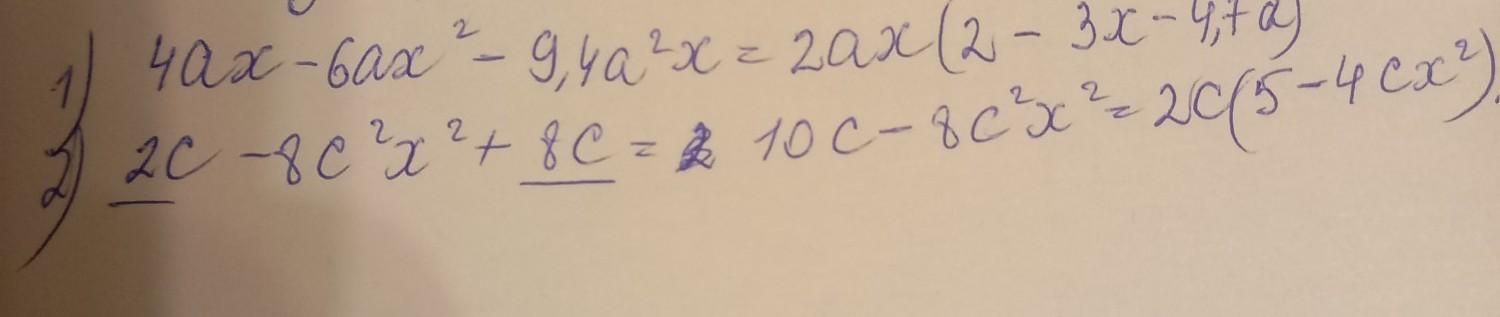 1) 4ax - 6ax² - 9,4a²x = 2ax(2 - 3x - 4,7a)
2) 2c - 8c²x² + 8c = 10c - 8c²x² = 2c(5 - 4cx²).